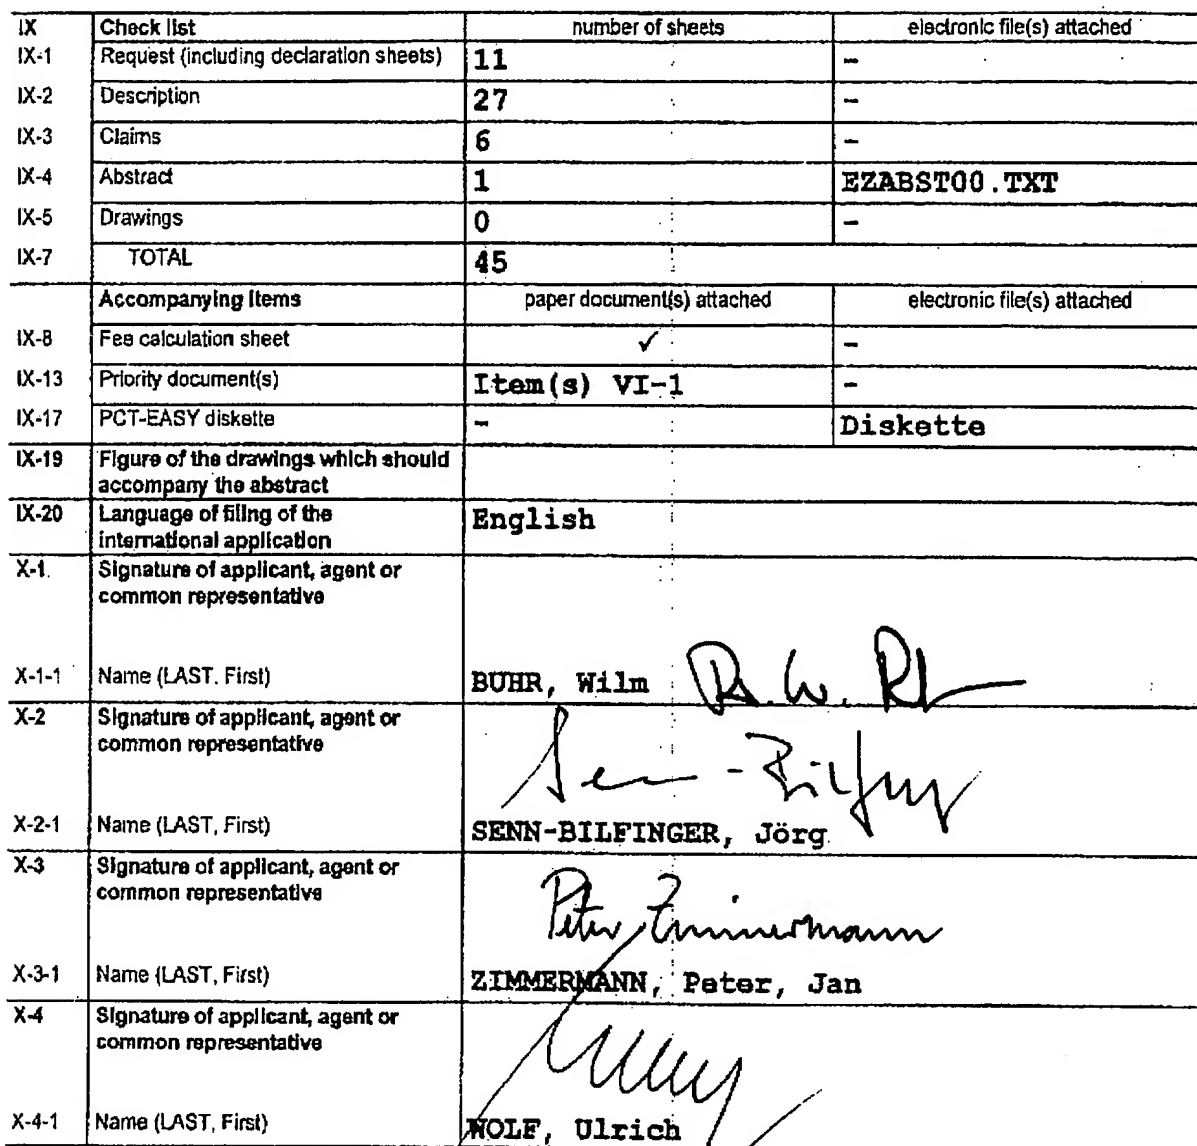 IX Check list number of sheets electronic file(s) attached
IX-1 Request (including declaration sheets) 11 –
IX-2 Description 27 –
IX-3 Claims 6 –
IX-4 Abstract 1 EZABST00.TXT
IX-5 Drawings 0 –
IX-7 TOTAL 45
Accompanying items paper document(s) attached electronic file(s) attached
IX-8 Fee calculation sheet ✓ –
IX-13 Priority document(s) Item(s) VI-1 –
IX-17 PCT-EASY diskette – Diskette
IX-19 Figure of the drawings which should
accompany the abstract
IX-20 Language of filing of the English
international application
X-1 Signature of applicant, agent or
common representative
X-1-1 Name (LAST, First) BUHR, Wilm
X-2 Signature of applicant, agent or
common representative
Senn-Bilfinger
X-2-1 Name (LAST, First) SENN-BILFINGER, Jörg
X-3 Signature of applicant, agent or
common representative
Peter Zimmermann
X-3-1 Name (LAST, First) ZIMMERMANN, Peter, Jan
X-4 Signature of applicant, agent or
common representative
X-4-1 Name (LAST, First) WOLF, Ulrich